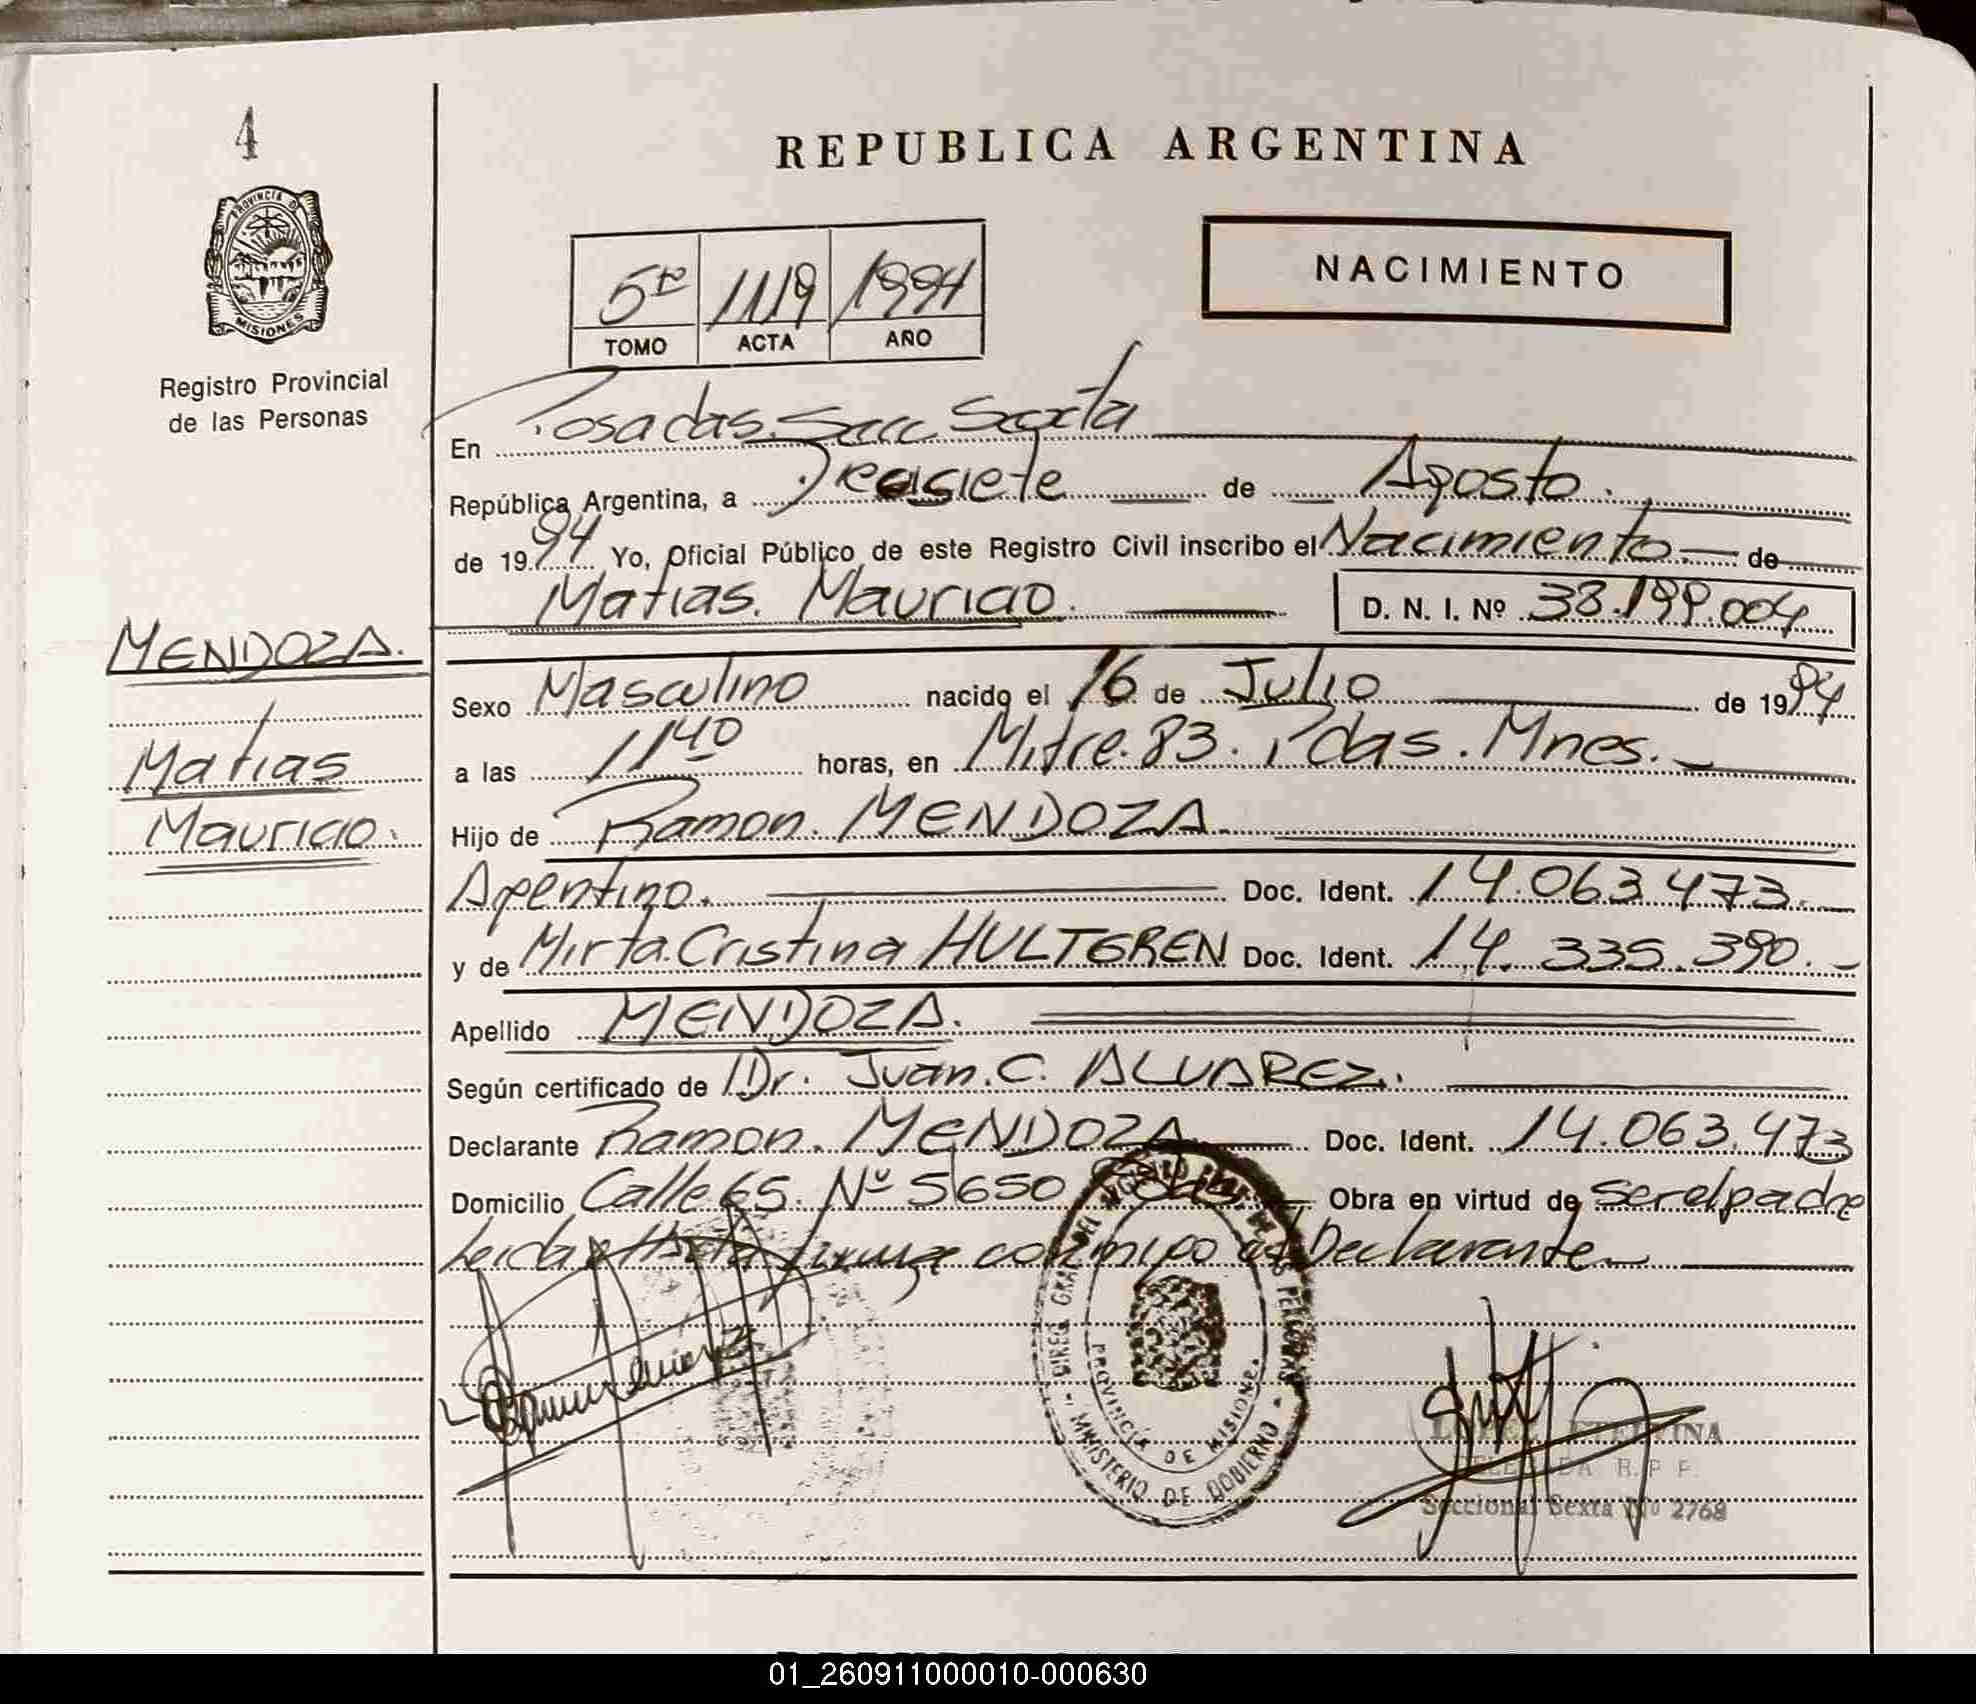 4
REPUBLICA ARGENTINA
PROVINCIA DE
MISIONES
Registro Provincial
de las Personas
5to 1119 1994
TOMO ACTA AÑO
NACIMIENTO
En Posadas. Secc. Sexta
República Argentina, a Diecisiete de Agosto.
de 1994 Yo, Oficial Público de este Registro Civil inscribo el Nacimiento de
Matias. Mauricio. D. N. I. Nº 38.199.004
MENDOZA.
Matias
Mauricio.
Sexo Masculino nacido el 16 de Julio de 1994
a las 1140 horas, en Mitre. 83. Pdas. Mnes.
Hijo de Ramon. MENDOZA
Argentino. Doc. Ident. 14.063.473.
y de Mirta. Cristina HULTGREN Doc. Ident. 14.335.390.
Apellido MENDOZA.
Según certificado de Dr. Juan. C. ALVAREZ.
Declarante Ramon. MENDOZA Doc. Ident. 14.063.473
Domicilio Calle 65. Nº 5650 Obra en virtud de ser el padre
Leida el Acta firma conmigo el Declarante
DIREC. GRAL. DEL REGISTRO PROV. DE LAS PERSONAS
PROVINCIA DE MISIONES
MINISTERIO DE GOBIERNO
LOPEZ ETELVINA
DELEGADA R. P. P.
Seccional Sexta Nº 2768
01_260911000010-000630